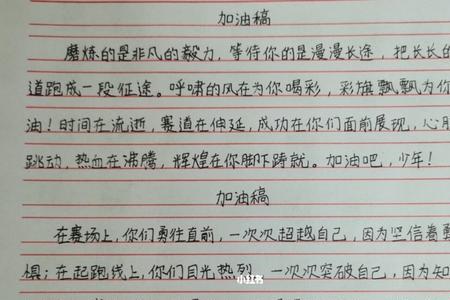 加油稿
磨炼的是非凡的毅力，等待你的是漫漫长途，把长长的
道跑成一段征途。呼啸的风在为你喝彩，彩旗飘飘为你
油！时间在流逝，赛道在伸延，成功在你们面前展现，心脏
跳动，热血在沸腾，辉煌在你脚下铸就。加油吧，少年！
加油稿
在赛场上，你们勇往直前，一次次超越自己，因为坚信眷
惧；在起跑线上，你们目光热烈，一次次突破自己，因为知
小红书